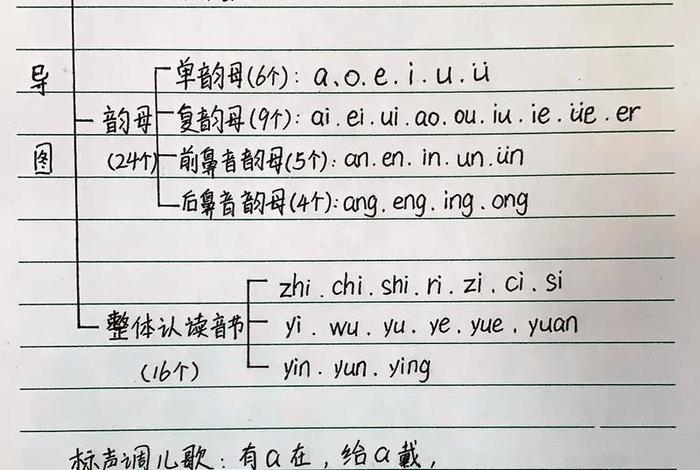 导
图
单韵母(6个): a、o.e.i.u.ü
韵母
(24个)
复韵母(9个): ai.ei.ui.ao.ou.iu.ie.üe.er
前鼻音韵母(5个): an.en.in.un.ün
后鼻音韵母(4个): ang.eng.ing.ong
整体认读音节
(16个)
zhi.chi.shi.ri.zi.ci.si
yi.wu.yu.ye.yue.yuan
yin.yun.ying
标声调儿歌: 有a在, 给a戴,